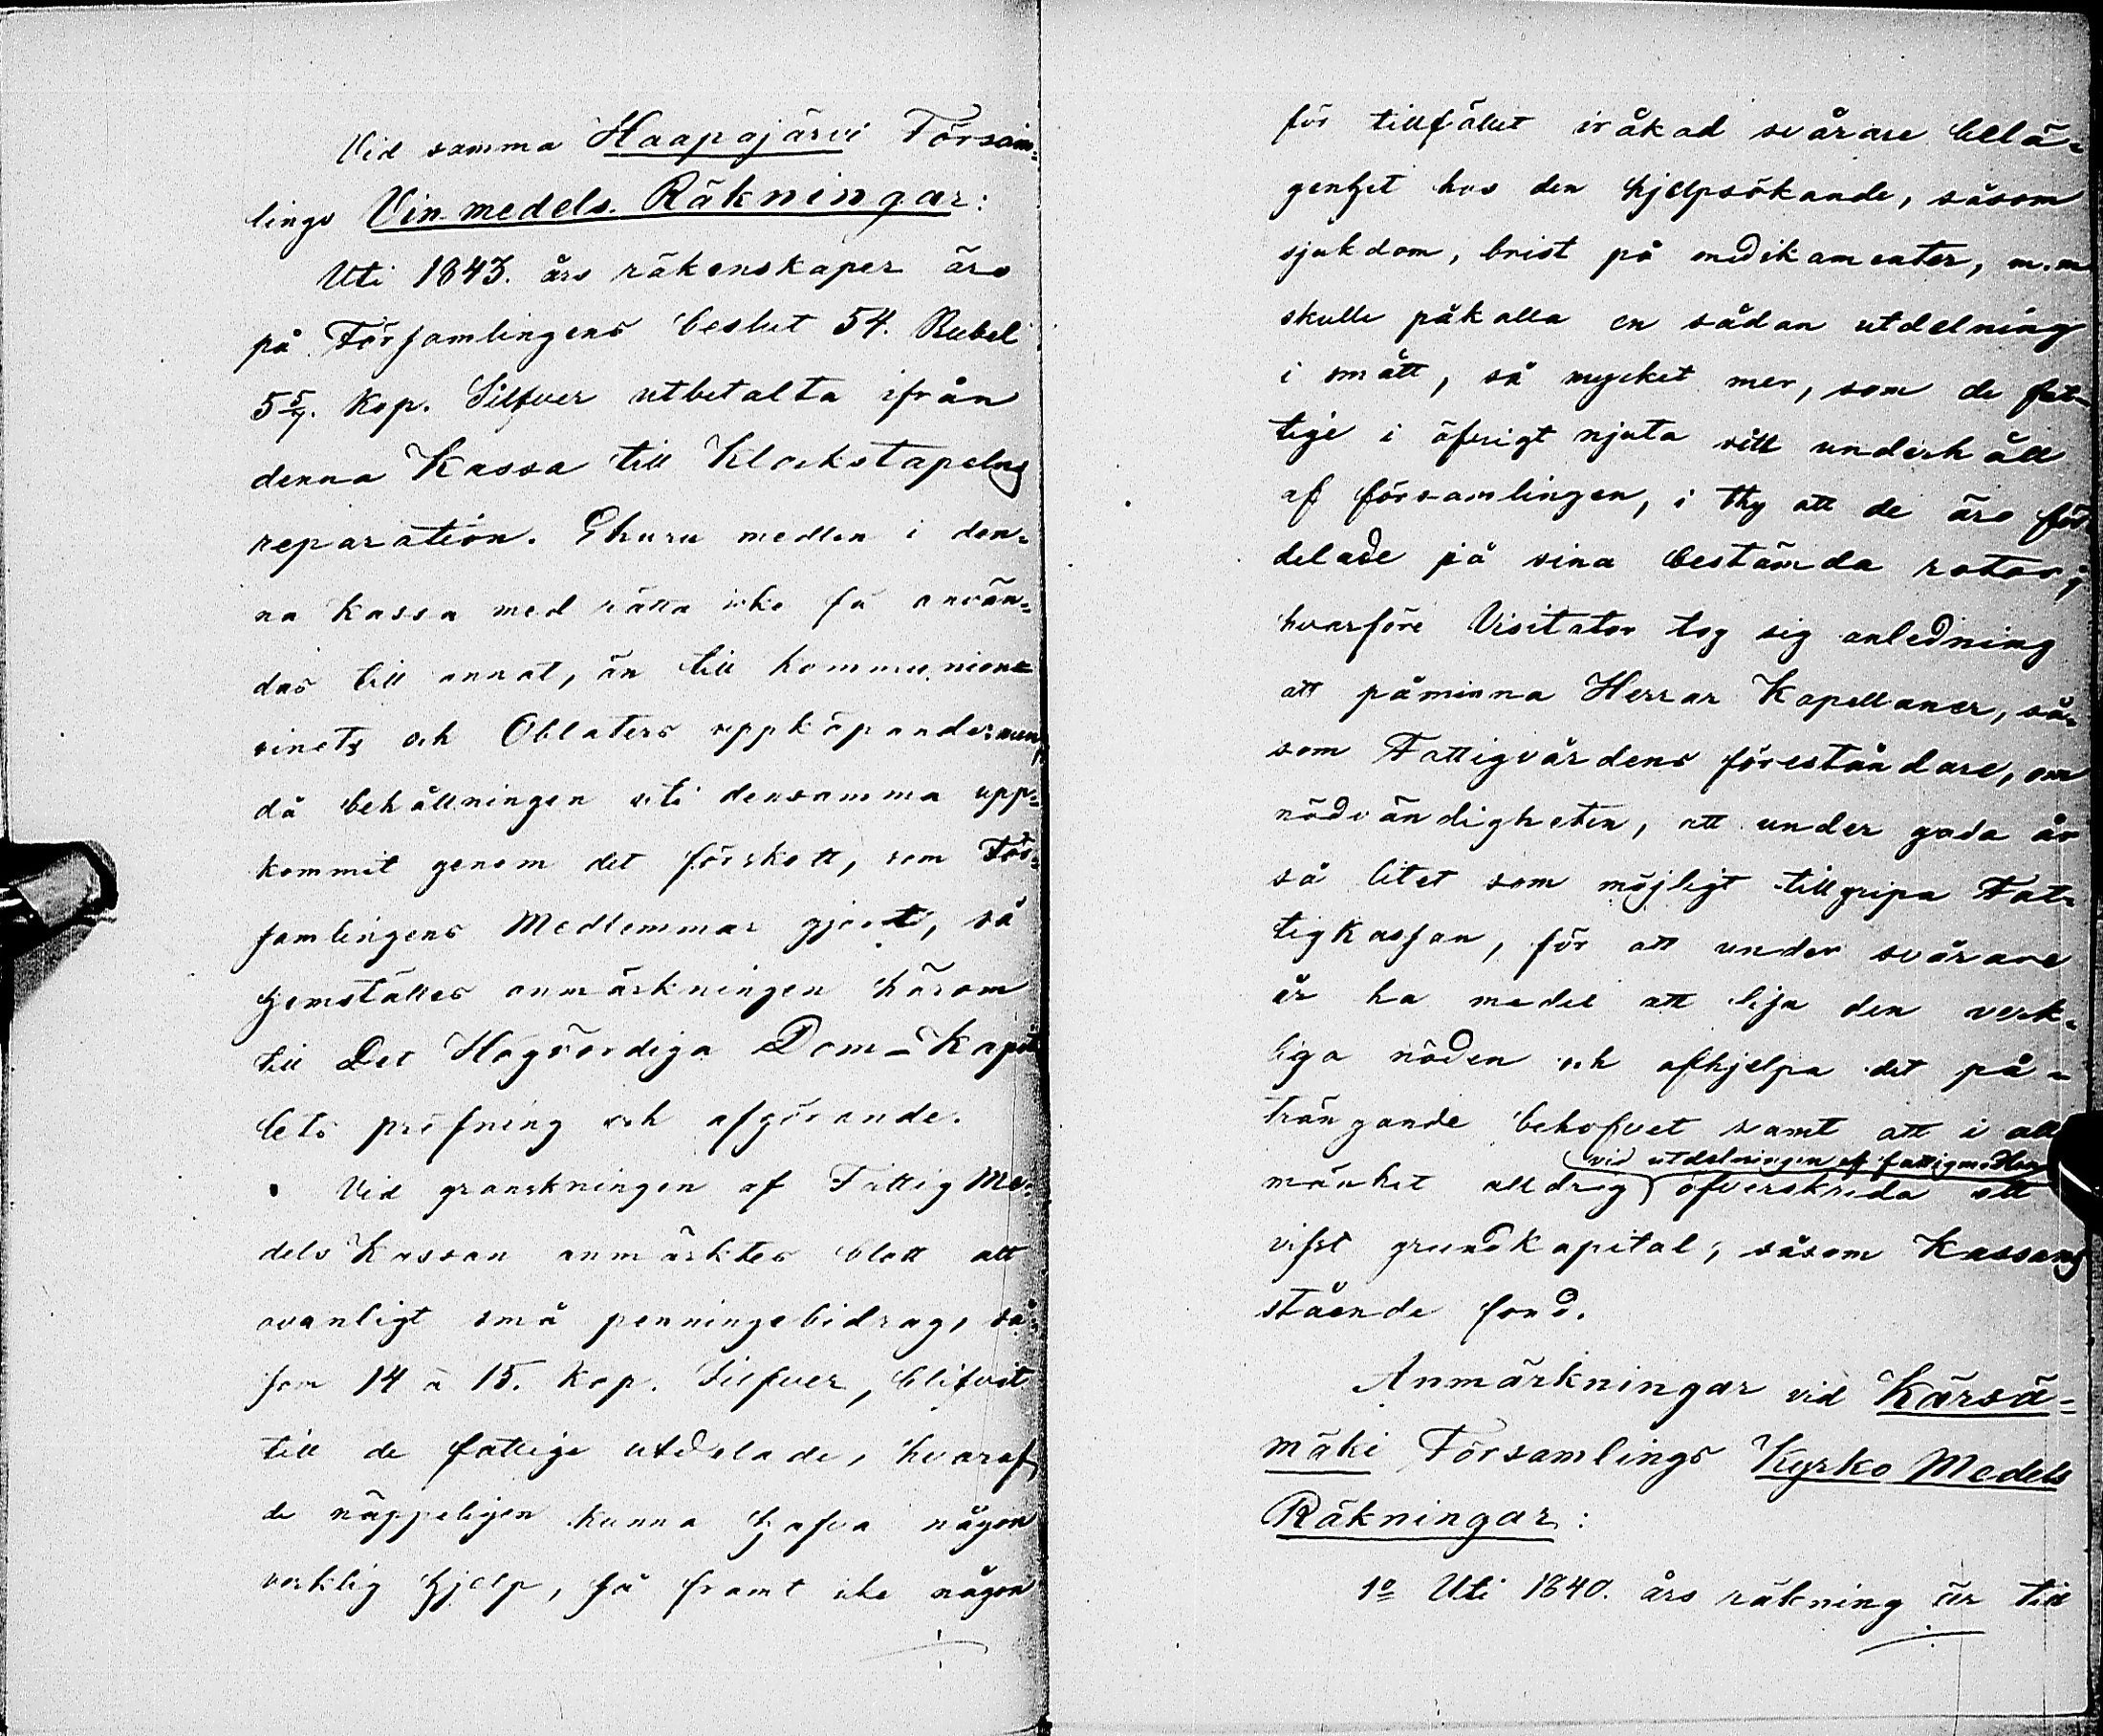 Vid samma Haapajärvi Försam-
lings Vin-medels Räkningar:
Uti 1843. års räkenskaper äro
på Församlingens beslut 54. Rubel
5 5/7. Kop. Silfver utbetalta ifrån
denna Kassa till Klockstapelns
reparation. Ehuru medlen i den-
na Kassa med rätta icke få använ-
das till annat, än till kommunions
vinets och Oblaters uppköpande; men
då behållningen uti densamma upp-
kommit genom det förskott, som För-
samlingens Medlemmar gjort, så
hemställes anmärkningen härom
till Det Högvördiga Dom-Kapit-
lets pröfning och afgörande.
Vid granskningen af Fattig Me-
dels Kassan anmärktes blott att
ovanligt små penningebidrag, så-
som 14 à 15. Kop. Silfver, blifvit
till de fattige utdelade, hvaraf
de näppeligen kunna hafva någon
verklig hjelp, så framt icke någon
för tillfället iråkad svårare belä-
genhet hos den hjelpsökande, såsom
sjukdom, brist på medikamenter, m.m
skulle påkalla en sådan utdelning
i smått, så mycket mer, som de fat-
tige i öfrigt njuta sitt underhåll
af församlingen, i thy att de äro för-
delade på sina bestämda rotar;
hvarföre Visitator tog sig anledning
att påminna Herrar Kapellaner, så-
som Fattigvårdens föreståndare, om
nödvändigheten, att under goda år
så litet som möjligt tillgripa Fat-
tigkassan, för att under svårare
år ha medel att lisa den verk-
liga nöden och afhjelpa det på-
trängande behofvet samt att i all-
vid utdelningen af fattigmedlen
mänhet alldrig öfverskrida ett
visst grundkapital, såsom Kassans
stående fond.
Anmärkningar vid Kärsä-
mäki Församlings Kyrko Medels
Räkningar:
1º Uti 1840. års räkning är till